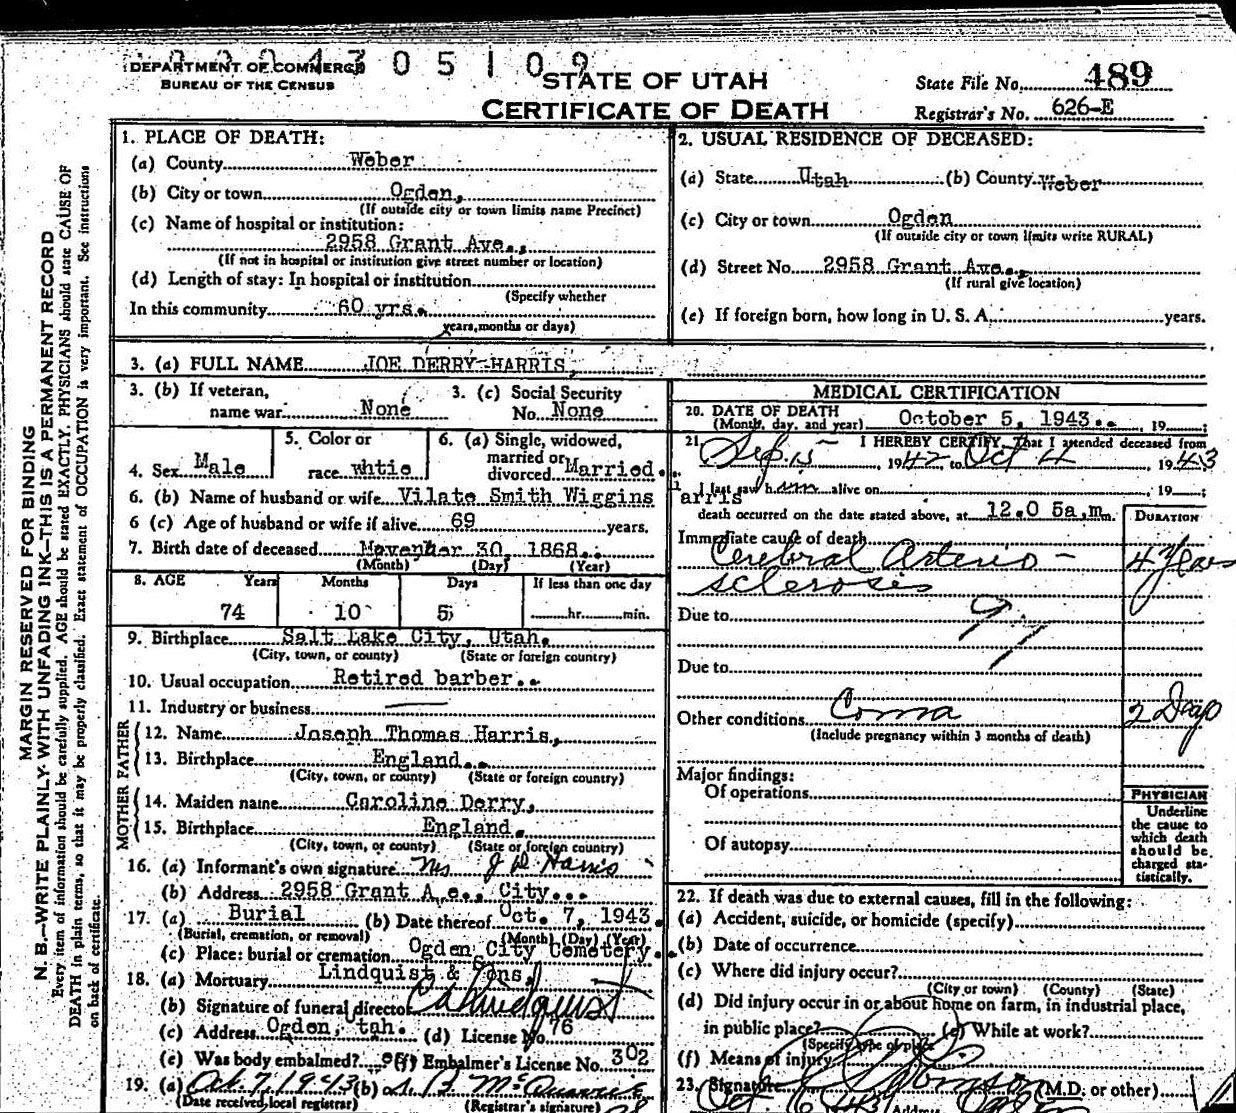 DEPARTMENT OF COMMERCE
BUREAU OF THE CENSUS
STATE OF UTAH
CERTIFICATE OF DEATH
State File No. 489
Registrar's No. 626-E
MARGIN RESERVED FOR BINDING
N. B.—WRITE PLAINLY WITH UNFADING INK—THIS IS A PERMANENT RECORD
Every item of information should be carefully supplied. AGE should be stated EXACTLY. PHYSICIANS should state CAUSE OF
DEATH in plain terms, so that it may be properly classified. Exact statement of OCCUPATION is very important. See instructions
on back of certificate.
1. PLACE OF DEATH:
(a) County Weber
(b) City or town Ogden,
(If outside city or town limits name Precinct)
(c) Name of hospital or institution:
2958 Grant Ave.,
(If not in hospital or institution give street number or location)
(d) Length of stay: In hospital or institution
(Specify whether
In this community 60 yrs.
years, months or days)
2. USUAL RESIDENCE OF DECEASED:
(a) State Utah (b) County Weber
(c) City or town Ogden
(If outside city or town limits write RURAL)
(d) Street No. 2958 Grant Ave.,
(If rural give location)
(e) If foreign born, how long in U. S. A. years.
3. (a) FULL NAME JOE DERRY HARRIS,
3. (b) If veteran,
name war None
3. (c) Social Security
No. None
4. Sex Male
5. Color or
race whtie
6. (a) Single, widowed,
married or
divorced Married.
6. (b) Name of husband or wife Vilate Smith Wiggins Harris
6 (c) Age of husband or wife if alive 69 years.
7. Birth date of deceased November 30, 1868.
(Month) (Day) (Year)
8. AGE Years Months Days If less than one day
74 10 5 hr. min.
9. Birthplace Salt Lake City, Utah.
(City, town, or county) (State or foreign country)
10. Usual occupation Retired barber..
11. Industry or business
FATHER
12. Name Joseph Thomas Harris,
13. Birthplace England..
(City, town, or county) (State or foreign country)
MOTHER
14. Maiden name Caroline Derry,
15. Birthplace England,
(City, town, or county) (State or foreign country)
16. (a) Informant's own signature Mrs J D Harris
(b) Address 2958 Grant A e., City...
17. (a) Burial (b) Date thereof Oct. 7, 1943.
(Burial, cremation, or removal) (Month) (Day) (Year)
(c) Place: burial or cremation Ogden City Cemetery.
18. (a) Mortuary Lindquist & Sons,
(b) Signature of funeral director
(c) Address Ogden, tah. (d) License No. 76
(e) Was body embalmed? (f) Embalmer's License No. 302
19. (a) Oct. 7, 1943 (b)
(Date received local registrar) (Registrar's signature)
MEDICAL CERTIFICATION
20. DATE OF DEATH October 5, 1943.. , 19 ;
(Month, day, and year)
21. I HEREBY CERTIFY, That I attended deceased from
Sep. 15, 1942 to Oct 4, 1943
I last saw him alive on , 19 ;
death occurred on the date stated above, at 12.0 5a.m.
DURATION
Immediate cause of death
Cerebral Arterio- 4 Years
sclerosis
Due to
97
Due to
Other conditions Coma 2 Days
(Include pregnancy within 3 months of death)
Major findings:
Of operations
Of autopsy
PHYSICIAN
Underline
the cause to
which death
should be
charged sta-
tistically.
22. If death was due to external causes, fill in the following:
(a) Accident, suicide, or homicide (specify)
(b) Date of occurrence
(c) Where did injury occur?
(City or town) (County) (State)
(d) Did injury occur in or about home on farm, in industrial place,
in public place? (e) While at work?
(Specify type of place)
(f) Means of injury
23. Signature (M.D. or other)